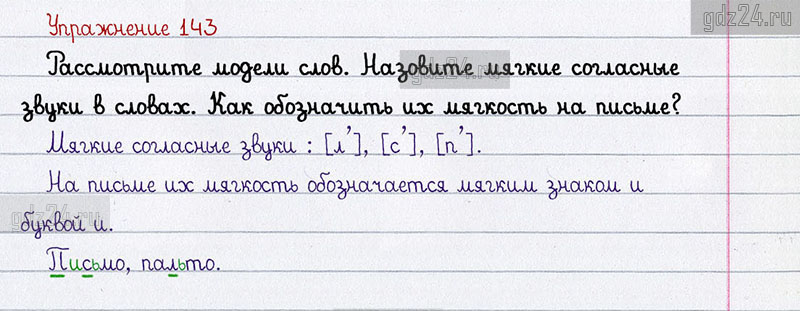 Упражнение 143
gdz24.ru
Рассмотрите модели слов. Назовите мягкие согласные
gdz24.ru
звуки в словах. Как обозначить их мягкость на письме?
Мягкие согласные звуки : [л'], [с'], [п'].
На письме их мягкость обозначается мягким знаком и
gdz24.ru
буквой и.
Письмо, пальто.